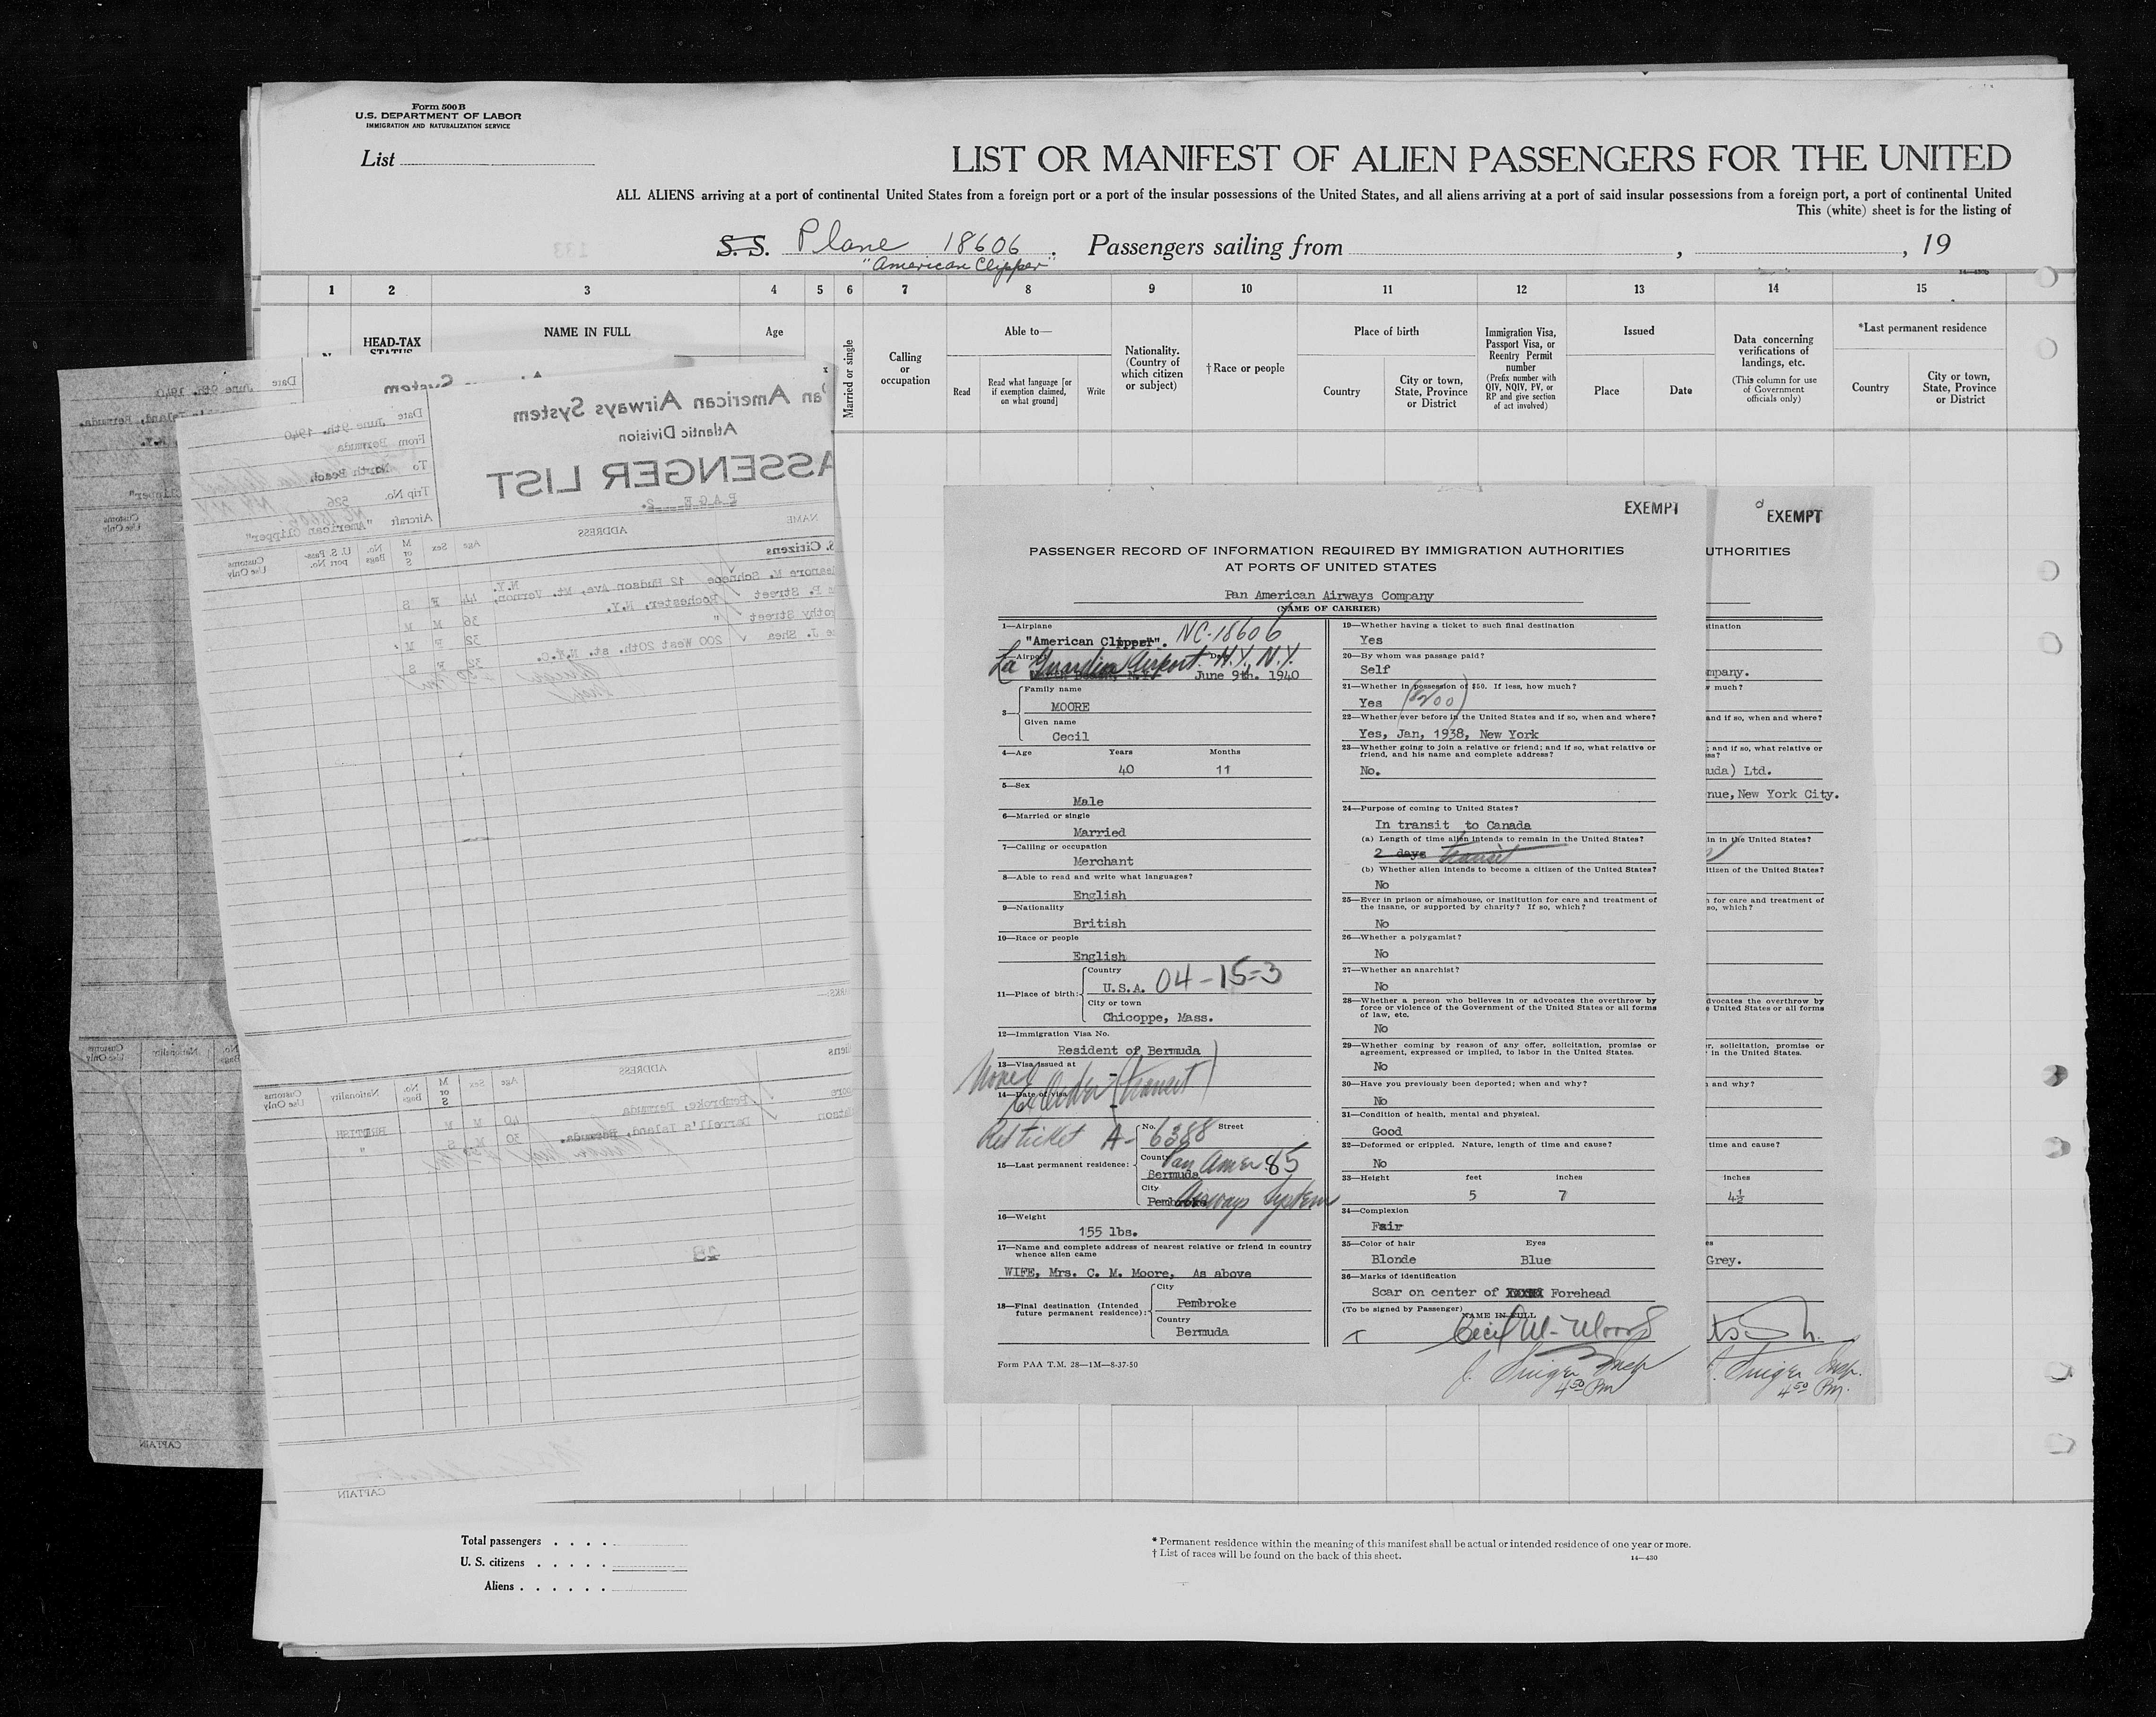 Form 500 B
U.S. DEPARTMENT OF LABOR
IMMIGRATION AND NATURALIZATION SERVICE
List
LIST OR MANIFEST OF ALIEN PASSENGERS FOR THE UNITED
ALL ALIENS arriving at a port of continental United States from a foreign port or a port of the insular possessions of the United States, and all aliens arriving at a port of said insular possessions from a foreign port, a port of continental United
This (white) sheet is for the listing of
S. S. Plane 18606 . Passengers sailing from , , 19
"American Clipper"
133
14—430
1 2 3 4 5 6 7 8 9 10 11 12 13 14 15
HEAD-TAX STATUS
NAME IN FULL
Age
Married or single
Calling or occupation
Able to—
Read
Read what language [or if exemption claimed, on what ground]
Write
Nationality. (Country of which citizen or subject)
†Race or people
Place of birth
Country
City or town, State, Province or District
Immigration Visa, Passport Visa, or Reentry Permit number
(Prefix number with QIV, NQIV, PV, or RP and give section of act involved)
Issued
Place
Date
Data concerning verifications of landings, etc.
(This column for use of Government officials only)
*Last permanent residence
Country
City or town, State, Province or District
Date June 9th. 1940
Pan American Airways System
Atlantic Division
ASSENGER LIST
PAGE 2.
Date June 9th. 1940
From Bermuda
To North Beach
Trip No. 526
Aircraft "American Clipper"
NAME ADDRESS Age Sex M or S No. Bags U. S. Pass-port No. Customs Use Only
S. Citizens
eanore M. Schnepe 12 Hudson Ave, Mt. Vernon, N.Y. 44 F S
P. Street Rochester, N.Y. 36 M M
rothy Street " 32 F M
e J. Shea 200 West 20th. st. N.Y.C. 32 F S
ARKS:—
liens ADDRESS Age Sex M or S No. Bags Nationality Customs Use Only
oore Pembroke, Bermuda 40 M M BRITISH
atson Darrell's Island, Bermuda. 30 M S "
CAPTAIN
CAPTAIN
EXEMPT
PASSENGER RECORD OF INFORMATION REQUIRED BY IMMIGRATION AUTHORITIES
AT PORTS OF UNITED STATES
Pan American Airways Company
(NAME OF CARRIER)
1—Airplane
"American Clipper". NC-18606
2—Airport Date
La Guardia Airport. N.Y., N.Y.
June 9th. 1940
3—
Family name
MOORE
Given name
Cecil
4—Age Years Months
40 11
5—Sex
Male
6—Married or single
Married
7—Calling or occupation
Merchant
8—Able to read and write what languages?
English
9—Nationality
British
10—Race or people
English
11—Place of birth:
Country
U.S.A. 04-15-3
City or town
Chicoppe, Mass.
12—Immigration Visa No.
Resident of Bermuda
13—Visa issued at
14—Date of visa
(transit)
Ret ticket A- 6388
No. Street
15—Last permanent residence:
County
Bermuda
Pan Amer 85
City
Pembroke
Airways System
16—Weight
155 lbs.
17—Name and complete address of nearest relative or friend in country
whence alien came
WIFE, Mrs. C. M. Moore, As above
18—Final destination (Intended future permanent residence):
City
Pembroke
Country
Bermuda
Form PAA T.M. 28—1M—8-37-50
19—Whether having a ticket to such final destination
Yes
20—By whom was passage paid?
Self
21—Whether in possession of $50. If less, how much?
Yes
22—Whether ever before in the United States and if so, when and where?
Yes, Jan, 1938, New York
23—Whether going to join a relative or friend; and if so, what relative or
friend, and his name and complete address?
No.
24—Purpose of coming to United States?
In transit to Canada
(a) Length of time alien intends to remain in the United States?
2 days transit
(b) Whether alien intends to become a citizen of the United States?
No
25—Ever in prison or almshouse, or institution for care and treatment of
the insane, or supported by charity? If so, which?
No
26—Whether a polygamist?
No
27—Whether an anarchist?
No
28—Whether a person who believes in or advocates the overthrow by
force or violence of the Government of the United States or all forms
of law, etc.
No
29—Whether coming by reason of any offer, solicitation, promise or
agreement, expressed or implied, to labor in the United States.
No
30—Have you previously been deported; when and why?
No
31—Condition of health, mental and physical.
Good
32—Deformed or crippled. Nature, length of time and cause?
No
33—Height feet inches
5 7
34—Complexion
Fair
35—Color of hair Eyes
Blonde Blue
36—Marks of identification
Scar on center of Forehead
(To be signed by Passenger)
NAME IN FULL
Cecil M. Moore
4 50 Pm
EXEMPT
UTHORITIES
tination
mpany.
much?
and if so, when and where?
; and if so, what relative or
uda) Ltd.
nue, New York City.
in in the United States?
itizen of the United States?
n for care and treatment of
so, which?
dvocates the overthrow by
United States or all forms
r, solicitation, promise or
in the United States.
and why?
time and cause?
inches
4½
es
Grey.
4 50 Pm.
Total passengers . . . .
U. S. citizens . . . . .
Aliens . . . . . .
* Permanent residence within the meaning of this manifest shall be actual or intended residence of one year or more.
† List of races will be found on the back of this sheet.
14—430